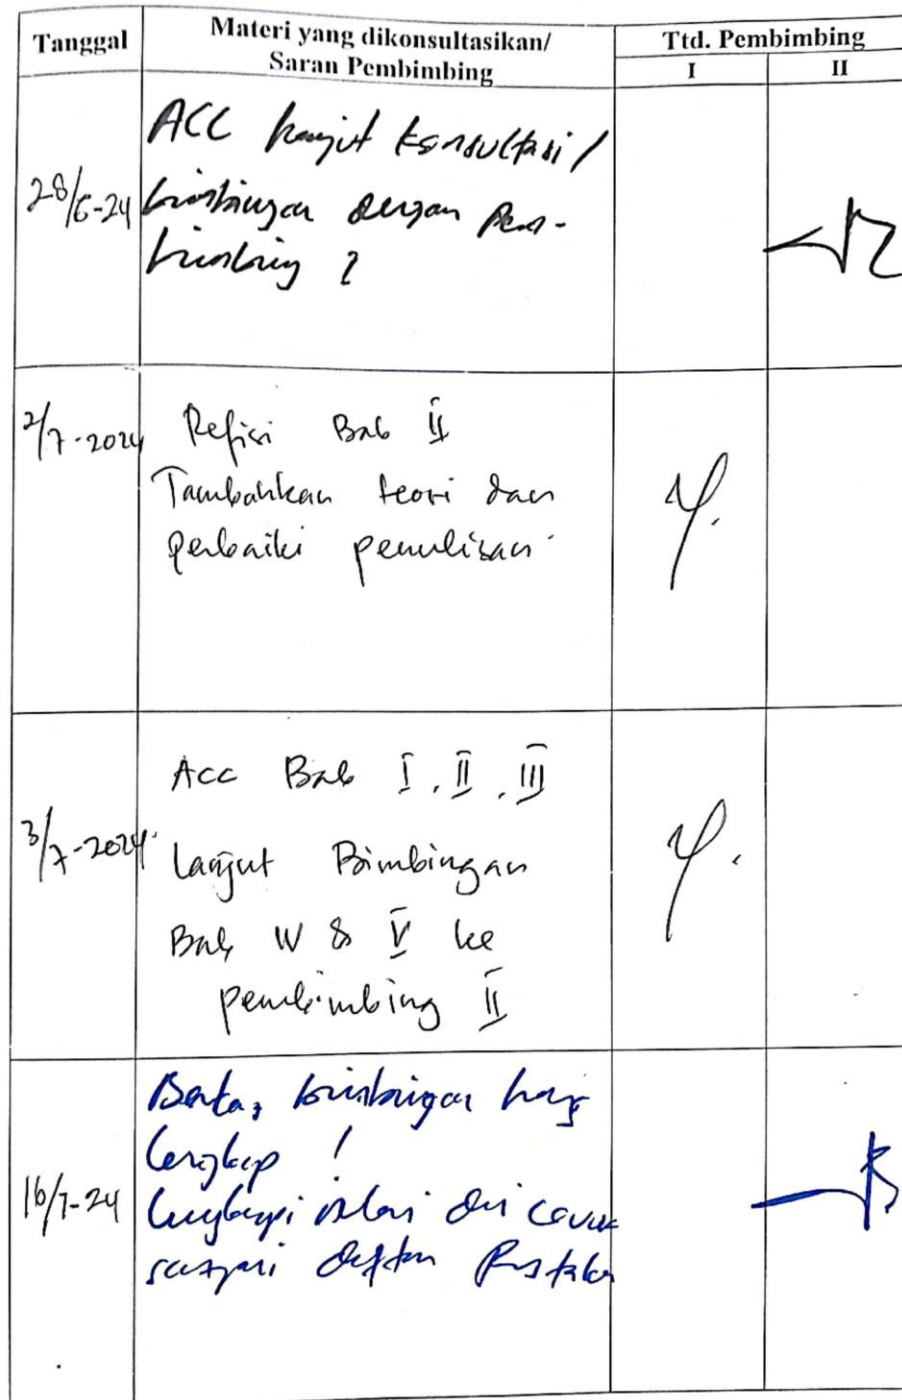 Tanggal
Materi yang dikonsultasikan/
Saran Pembimbing
Ttd. Pembimbing
I
II
28/6-24
ACC lanjut konsultasi/
bimbingan dengan Pem-
bimbing 2
2/7-2024
Refisi Bab II
Tambahkan teori dan
perbaiki penulisan.
3/7-2024.
Acc Bab I, II, III
Lanjut Bimbingan
Bab IV & V ke
pembimbing II
16/7-24
bimbingan
lengkap !
lengkapi mulai dri cover
sampai daftar Pustaka